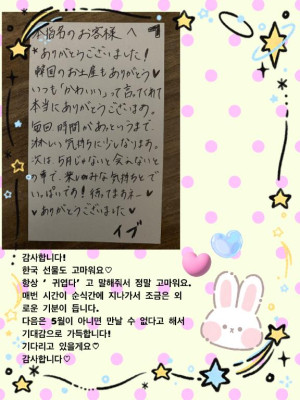 本指名のお客様へ 1
*ありがとうございました!
韓国のお土産もありがとう♡
いつも「かわいい」って言ってくれて
本当にありがとうございます。
毎回時間があっというまで、
淋しい気持ちに少しなります。
次は、5月じゃないと会えないと
の事で、楽しみな気持ちとで
いっぱいです!待ってまあす♡
♥ありがとうございました♥
イブ
감사합니다!
한국 선물도 고마워요♡
항상 ' 귀엽다' 고 말해줘서 정말 고마워요.
매번 시간이 순식간에 지나가서 조금은 외
로운 기분이 듭니다.
다음은 5월이 아니면 만날 수 없다고 해서
기대감으로 가득합니다!
기다리고 있을게요♡
감사합니다♡